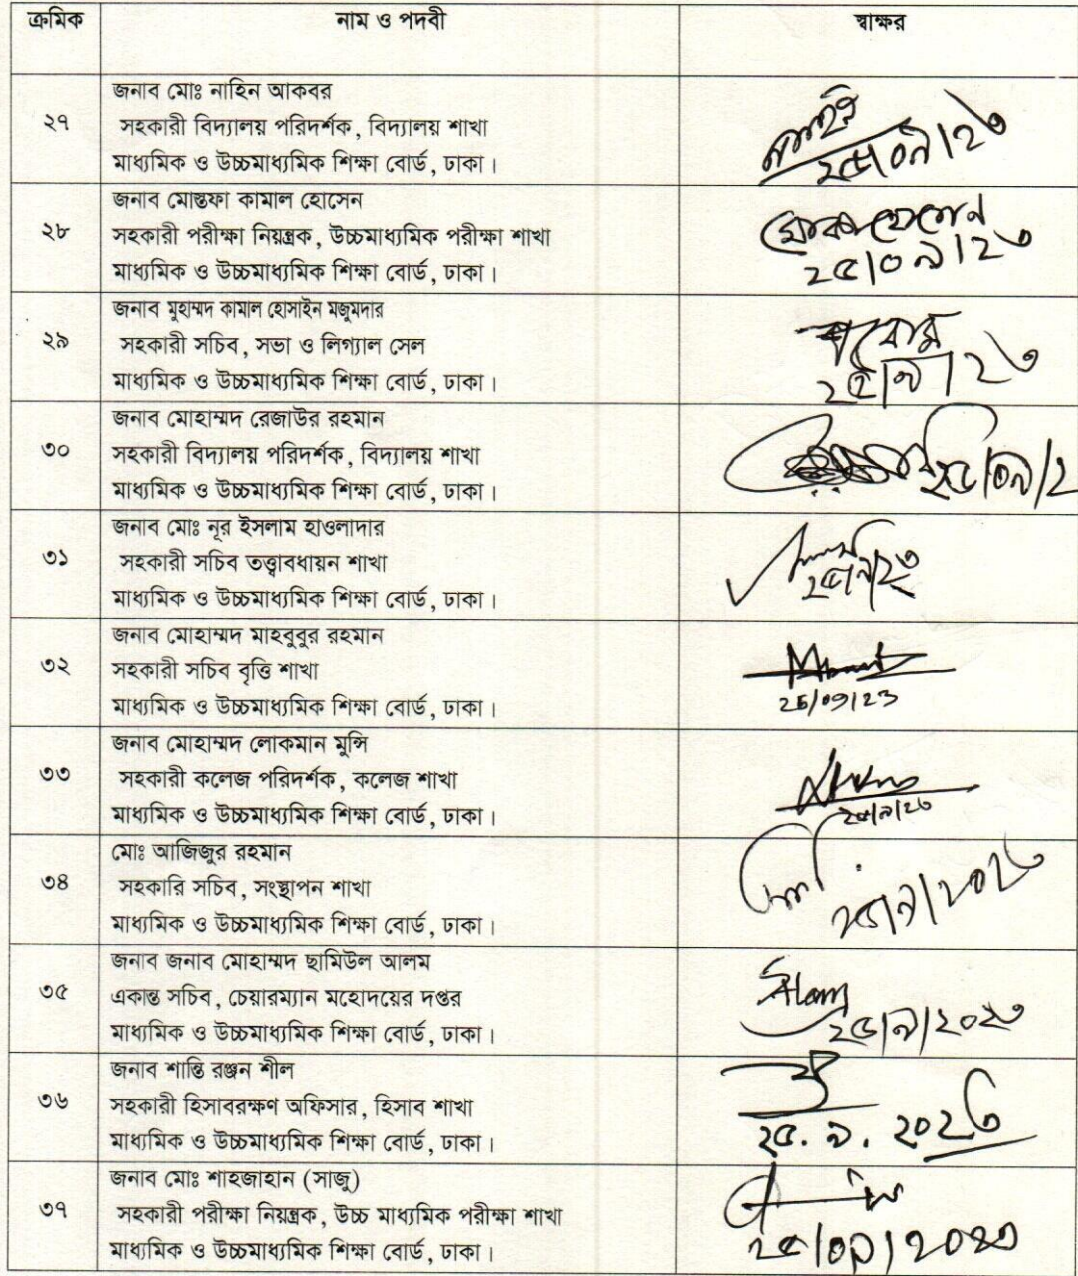 ক্রমিক নাম ও পদবী স্বাক্ষর
জনাব মোঃ নাহিন আকবর
২৭ সহকারী বিদ্যালয় পরিদর্শক, বিদ্যালয় শাখা
মাধ্যমিক ও উচ্চমাধ্যমিক শিক্ষা বোর্ড, ঢাকা।
২৫/০৯/২৩
জনাব মোস্তফা কামাল হোসেন
২৮ সহকারী পরীক্ষা নিয়ন্ত্রক, উচ্চমাধ্যমিক পরীক্ষা শাখা
মাধ্যমিক ও উচ্চমাধ্যমিক শিক্ষা বোর্ড, ঢাকা।
২৫/০৯/২৩
জনাব মুহাম্মদ কামাল হোসাইন মজুমদার
২৯ সহকারী সচিব, সভা ও লিগ্যাল সেল
মাধ্যমিক ও উচ্চমাধ্যমিক শিক্ষা বোর্ড, ঢাকা।
২৫/৯/২৩
জনাব মোহাম্মদ রেজাউর রহমান
৩০ সহকারী বিদ্যালয় পরিদর্শক, বিদ্যালয় শাখা
মাধ্যমিক ও উচ্চমাধ্যমিক শিক্ষা বোর্ড, ঢাকা।
২৫/০৯/২
জনাব মোঃ নূর ইসলাম হাওলাদার
৩১ সহকারী সচিব তত্ত্বাবধায়ন শাখা
মাধ্যমিক ও উচ্চমাধ্যমিক শিক্ষা বোর্ড, ঢাকা।
২৫/৯/২৩
জনাব মোহাম্মদ মাহবুবুর রহমান
৩২ সহকারী সচিব বৃত্তি শাখা
মাধ্যমিক ও উচ্চমাধ্যমিক শিক্ষা বোর্ড, ঢাকা।
25/09/23
জনাব মোহাম্মদ লোকমান মুন্সি
৩৩ সহকারী কলেজ পরিদর্শক, কলেজ শাখা
মাধ্যমিক ও উচ্চমাধ্যমিক শিক্ষা বোর্ড, ঢাকা।
২৫/৯/২৩
মোঃ আজিজুর রহমান
৩৪ সহকারি সচিব, সংস্থাপন শাখা
মাধ্যমিক ও উচ্চমাধ্যমিক শিক্ষা বোর্ড, ঢাকা।
২৫/৯/২০২৩
জনাব জনাব মোহাম্মদ ছামিউল আলম
৩৫ একান্ত সচিব, চেয়ারম্যান মহোদয়ের দপ্তর
মাধ্যমিক ও উচ্চমাধ্যমিক শিক্ষা বোর্ড, ঢাকা।
Alam
২৫/৯/২০২৩
জনাব শান্তি রঞ্জন শীল
৩৬ সহকারী হিসাবরক্ষণ অফিসার, হিসাব শাখা
মাধ্যমিক ও উচ্চমাধ্যমিক শিক্ষা বোর্ড, ঢাকা।
২৫.৯.২০২৩
জনাব মোঃ শাহজাহান (সাজু)
৩৭ সহকারী পরীক্ষা নিয়ন্ত্রক, উচ্চ মাধ্যমিক পরীক্ষা শাখা
মাধ্যমিক ও উচ্চমাধ্যমিক শিক্ষা বোর্ড, ঢাকা।
২৫/০৯/২০২৩